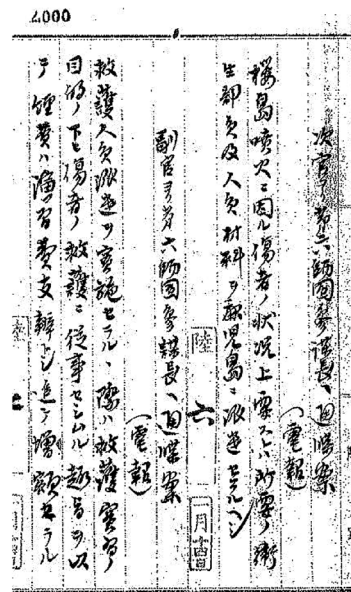 2,000
次官ヨリ第六師団参謀長ヘ通牒案
(電報)
桜島噴火ニ因ル傷者ノ状況上要スレハ所要ノ衛
生部員及人員材料ヲ鹿児島ニ派遣セラルヘシ
陸 六 一月十四日
副官ヨリ第六師団参謀長ヘ通牒案
(電報)
救護人員派遣ヲ実施セラルヽ際ハ救護実習ノ
目的ノ下ニ傷者ノ救護ニ従事セシムル趣旨ヲ以
テ経費ハ演習費支弁トシ追テ増額セラル